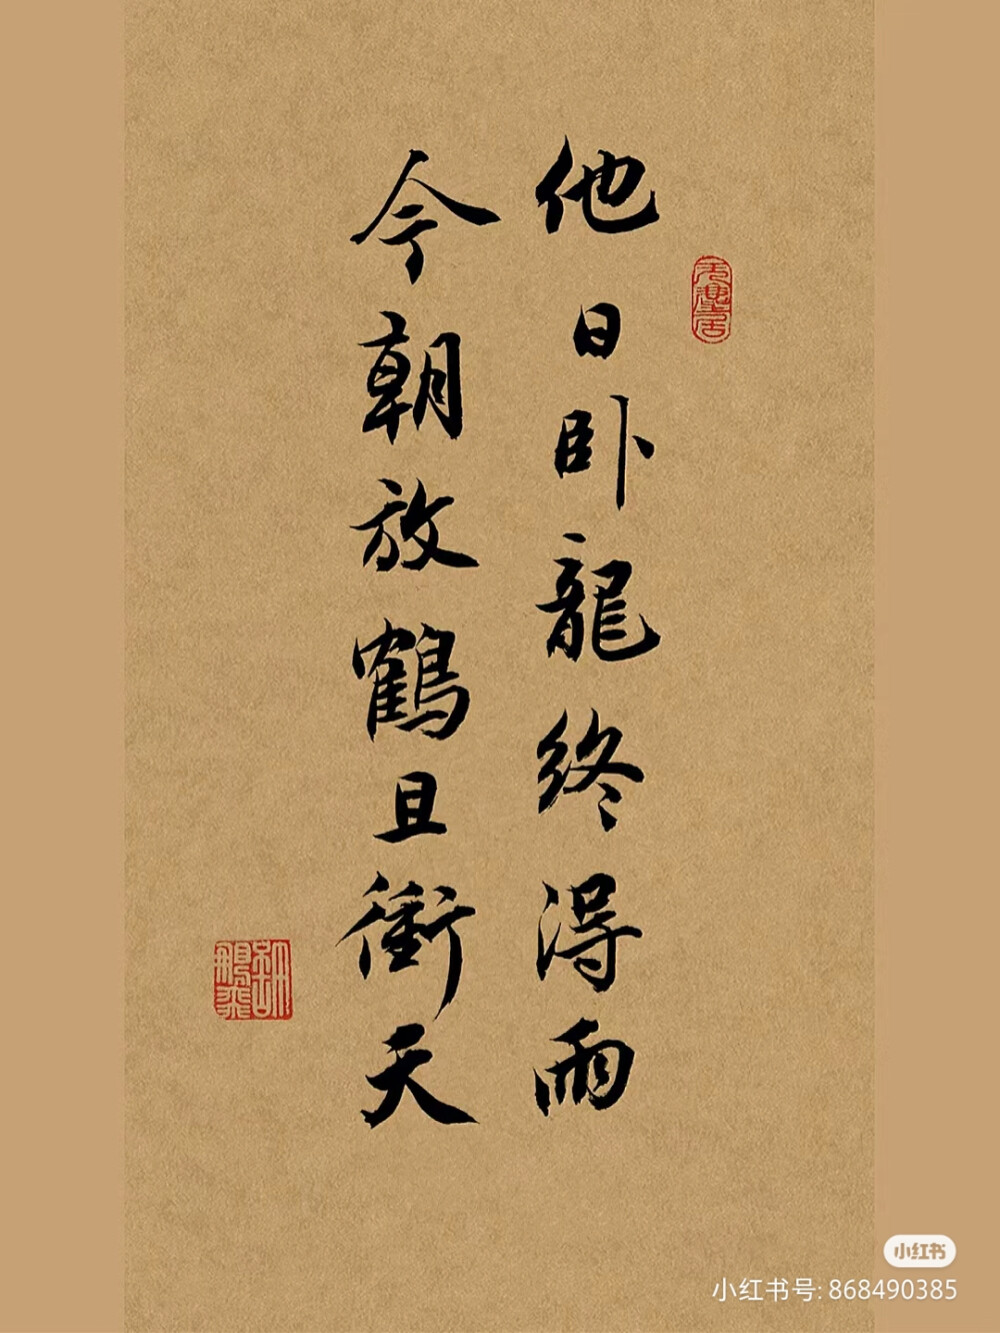 他日卧龍終得雨
今朝放鶴且衝天
小红书
小红书号: 868490385